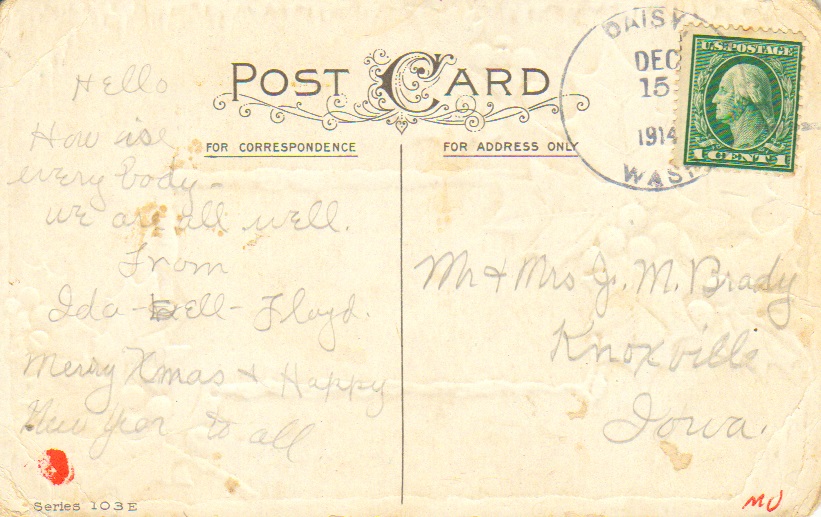 POST CARD
FOR CORRESPONDENCE
FOR ADDRESS ONLY
DEC
15
1914
WASH
U.S. POSTAGE
1 CENT 1
Hello
How is
every body-
we are all well.
From
Ida - Ell - Floyd.
Merry Xmas & Happy
New Year to all
Mr + Mrs J. M. Brady
Knoxville
Iowa.
Series 103E
MU